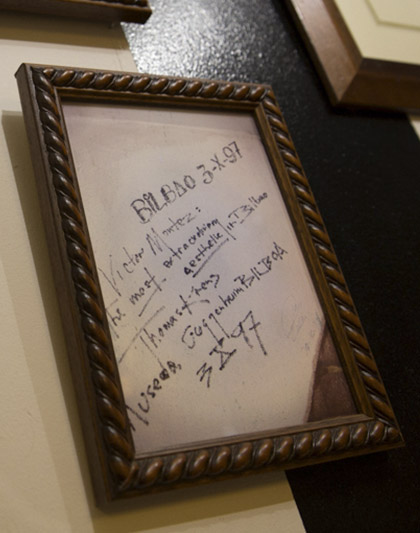 BILBAO 3-X-97
Victor Montez:
The most extraordinary
aesthetic in Bilbao
Thomas Krens
Museoa, Guggenheim BILBOA
3 X 97